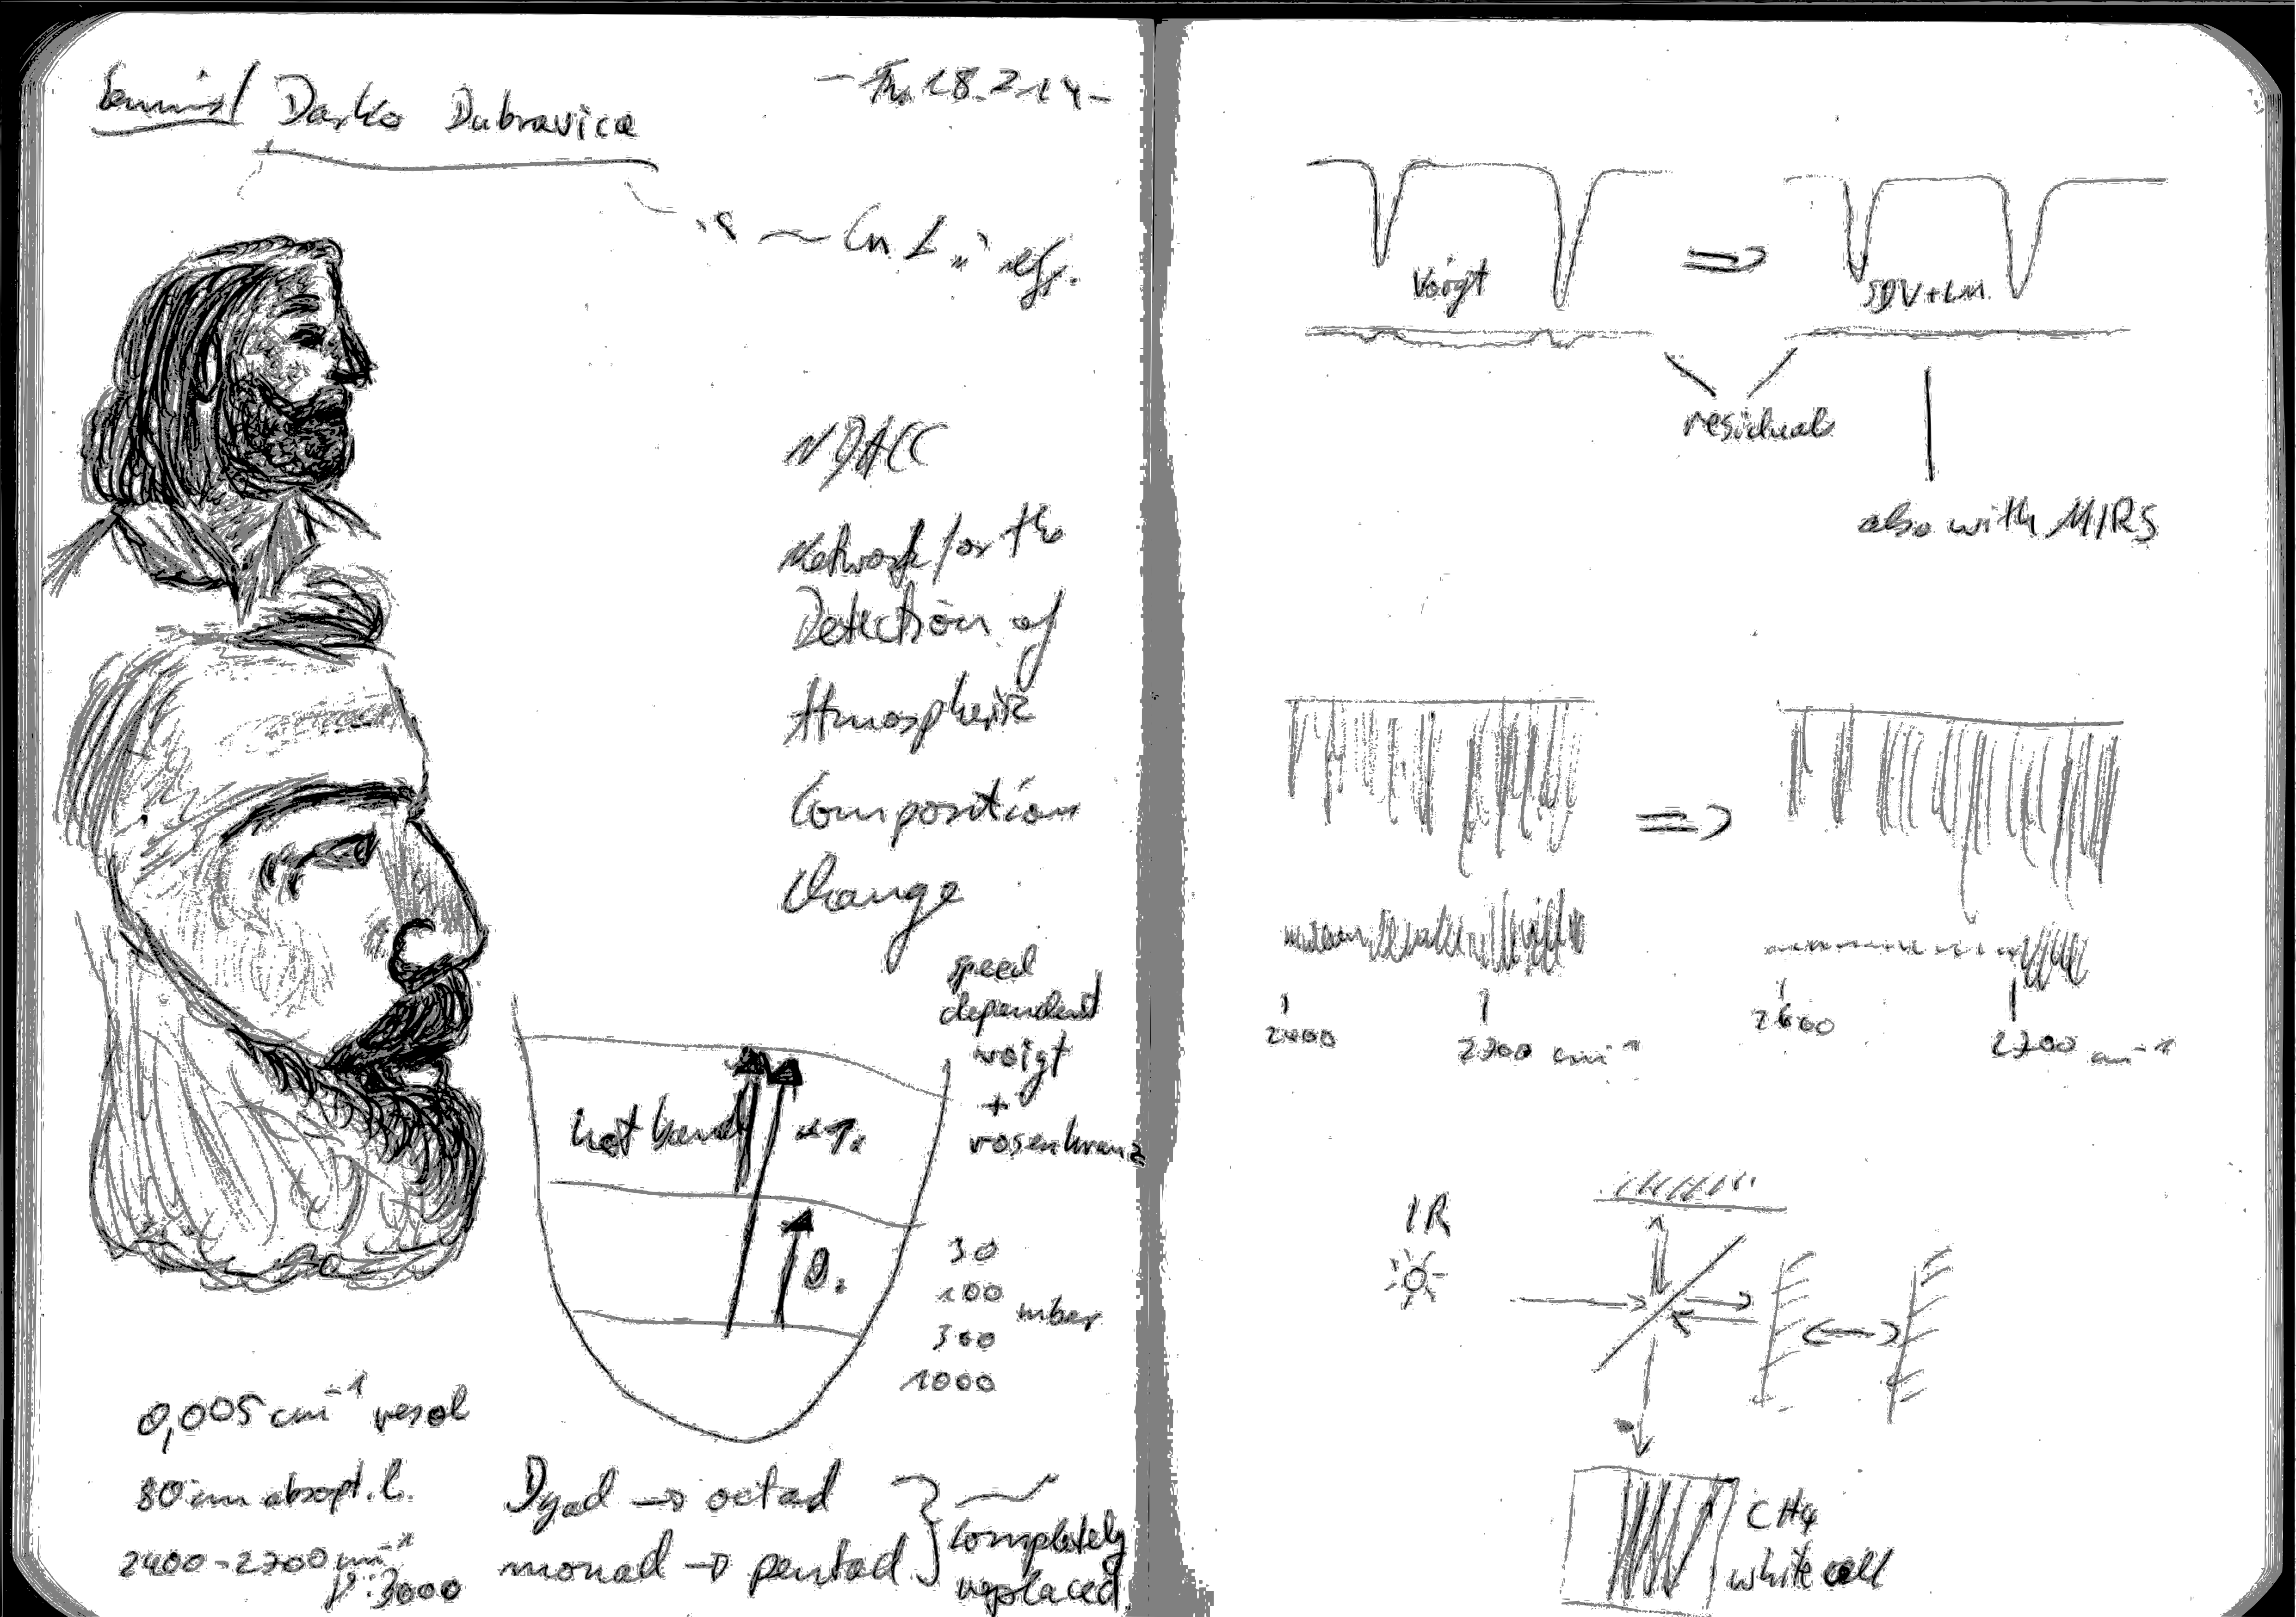 Darko Dubravica
NDACC
Network for the
Detection of
Atmospheric
Composition
Change
speed
dependent
voigt
+
rosenkranz
hot band
1.
0.
30
100
300
1000
mbar
0,005 cm⁻¹ resol
80 cm absopt. l.
2400-2700 cm⁻¹
3000
Dyad → octad
monad → pentad
completely
replaced
Voigt
⇒
SDV+LM
residuals
also with MIRS
⇒
2400
2700 cm⁻¹
2400
2700 cm⁻¹
IR
CH4
white cell